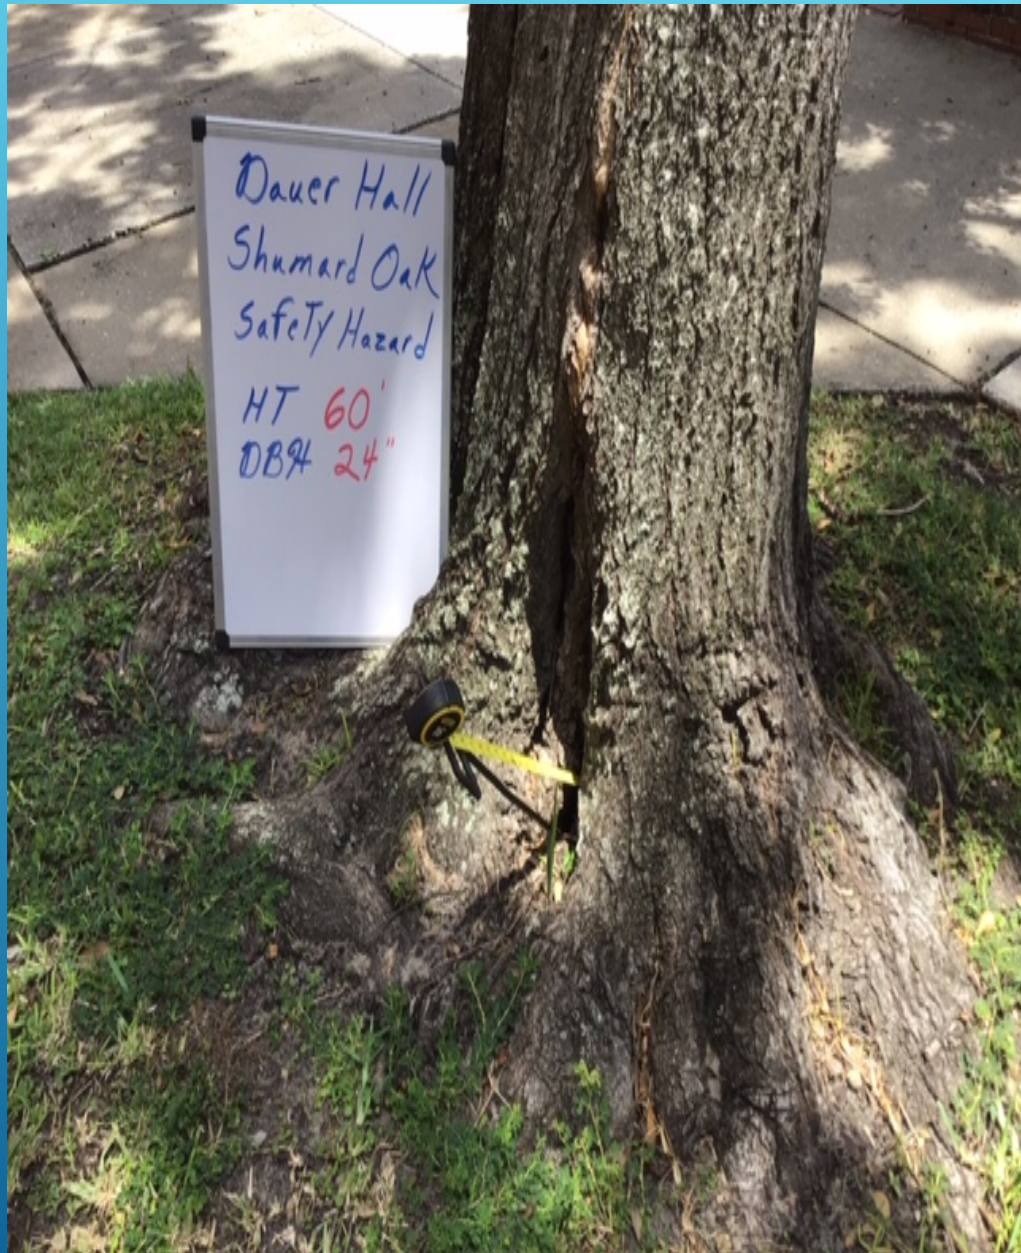 Dauer Hall
Shumard Oak
Safety Hazard
HT 60'
DBH 24"